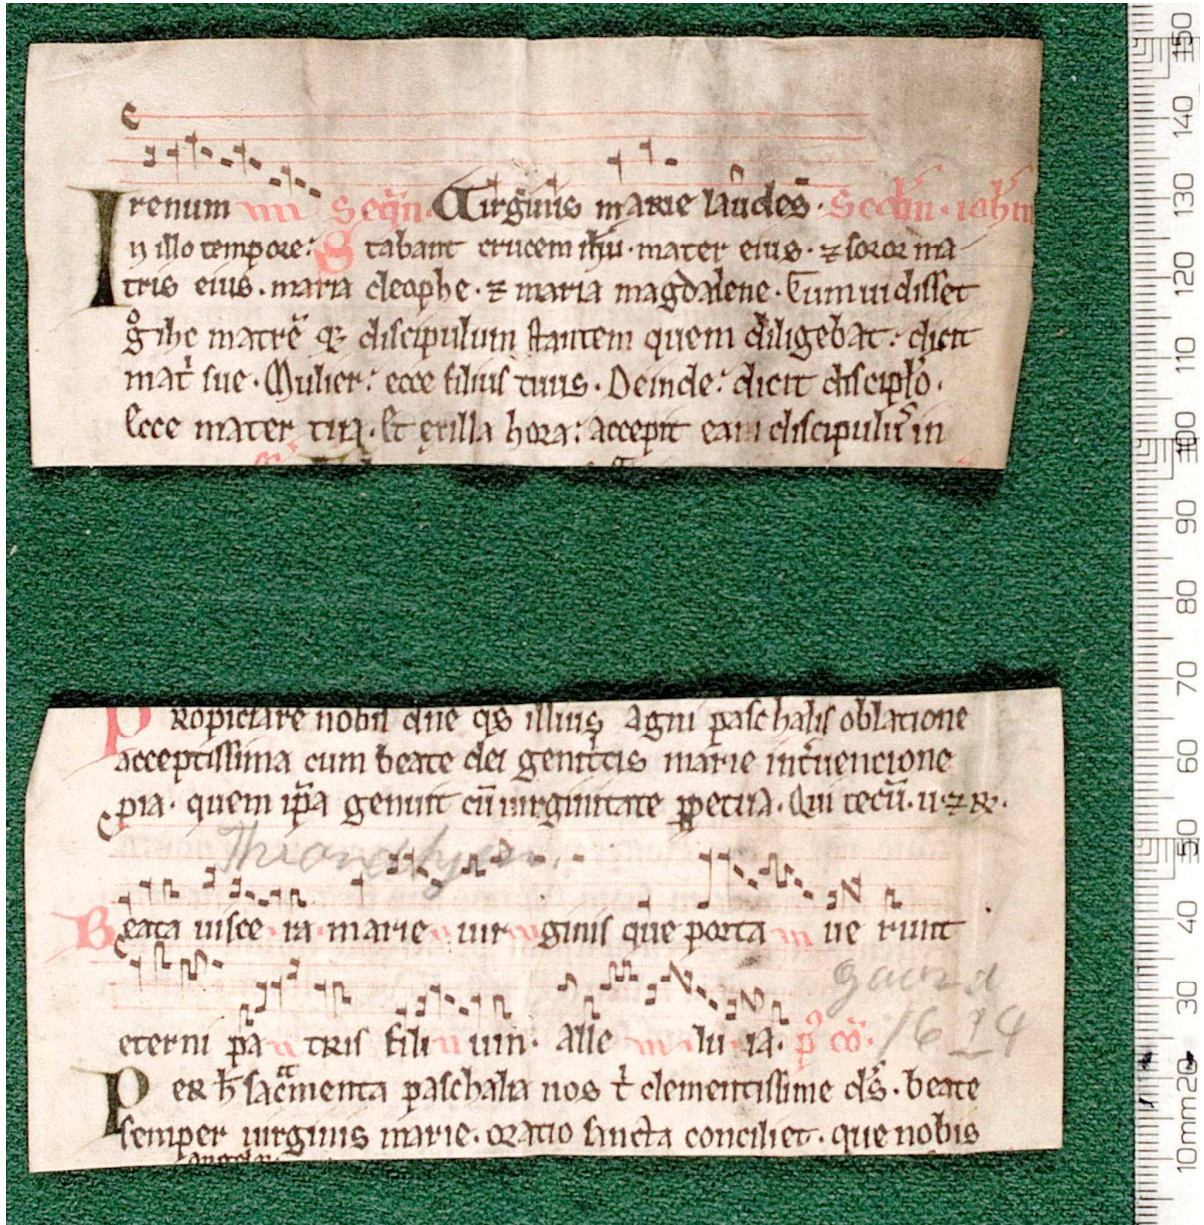 renum Seq̄n. Uirginis marie laudes. Scd̄m. ioh̄m
In illo tempore: Stabant crucem ih̄u. mater eius. ⁊ soror ma
tris eius. maria cleophe. ⁊ maria magdalene. Cum uidisset
gͦ ihc matrē ⁊ discipulum stantem quem diligebat: dicit
mat̄ sue. Mulier: ecce filius tuus. Deinde: dicit discipl̄o.
Ecce mater tua. Et ex illa hora: accepit eam discipulus in
Propiciare nobis dn̄e qs̄ illius agni paschalis oblatione
acceptissima cum beate dei genitͥcis marie int̄uencione
pia. quem ip̄a genuit cū uirginitate ꝑpetua. Qui tecū. u. ⁊ R.
Throndhjem.
Beata uisce ra marie uir ginis que porta ue runt
gaard
eterni pa tris fili um. Alle lu ia. p̄ cō.
1624
Per h̄ sac̄menta paschalia nos t̄ clementissime ds̄. beate
semper uirginis marie. oratio sancta conciliet. que nobis